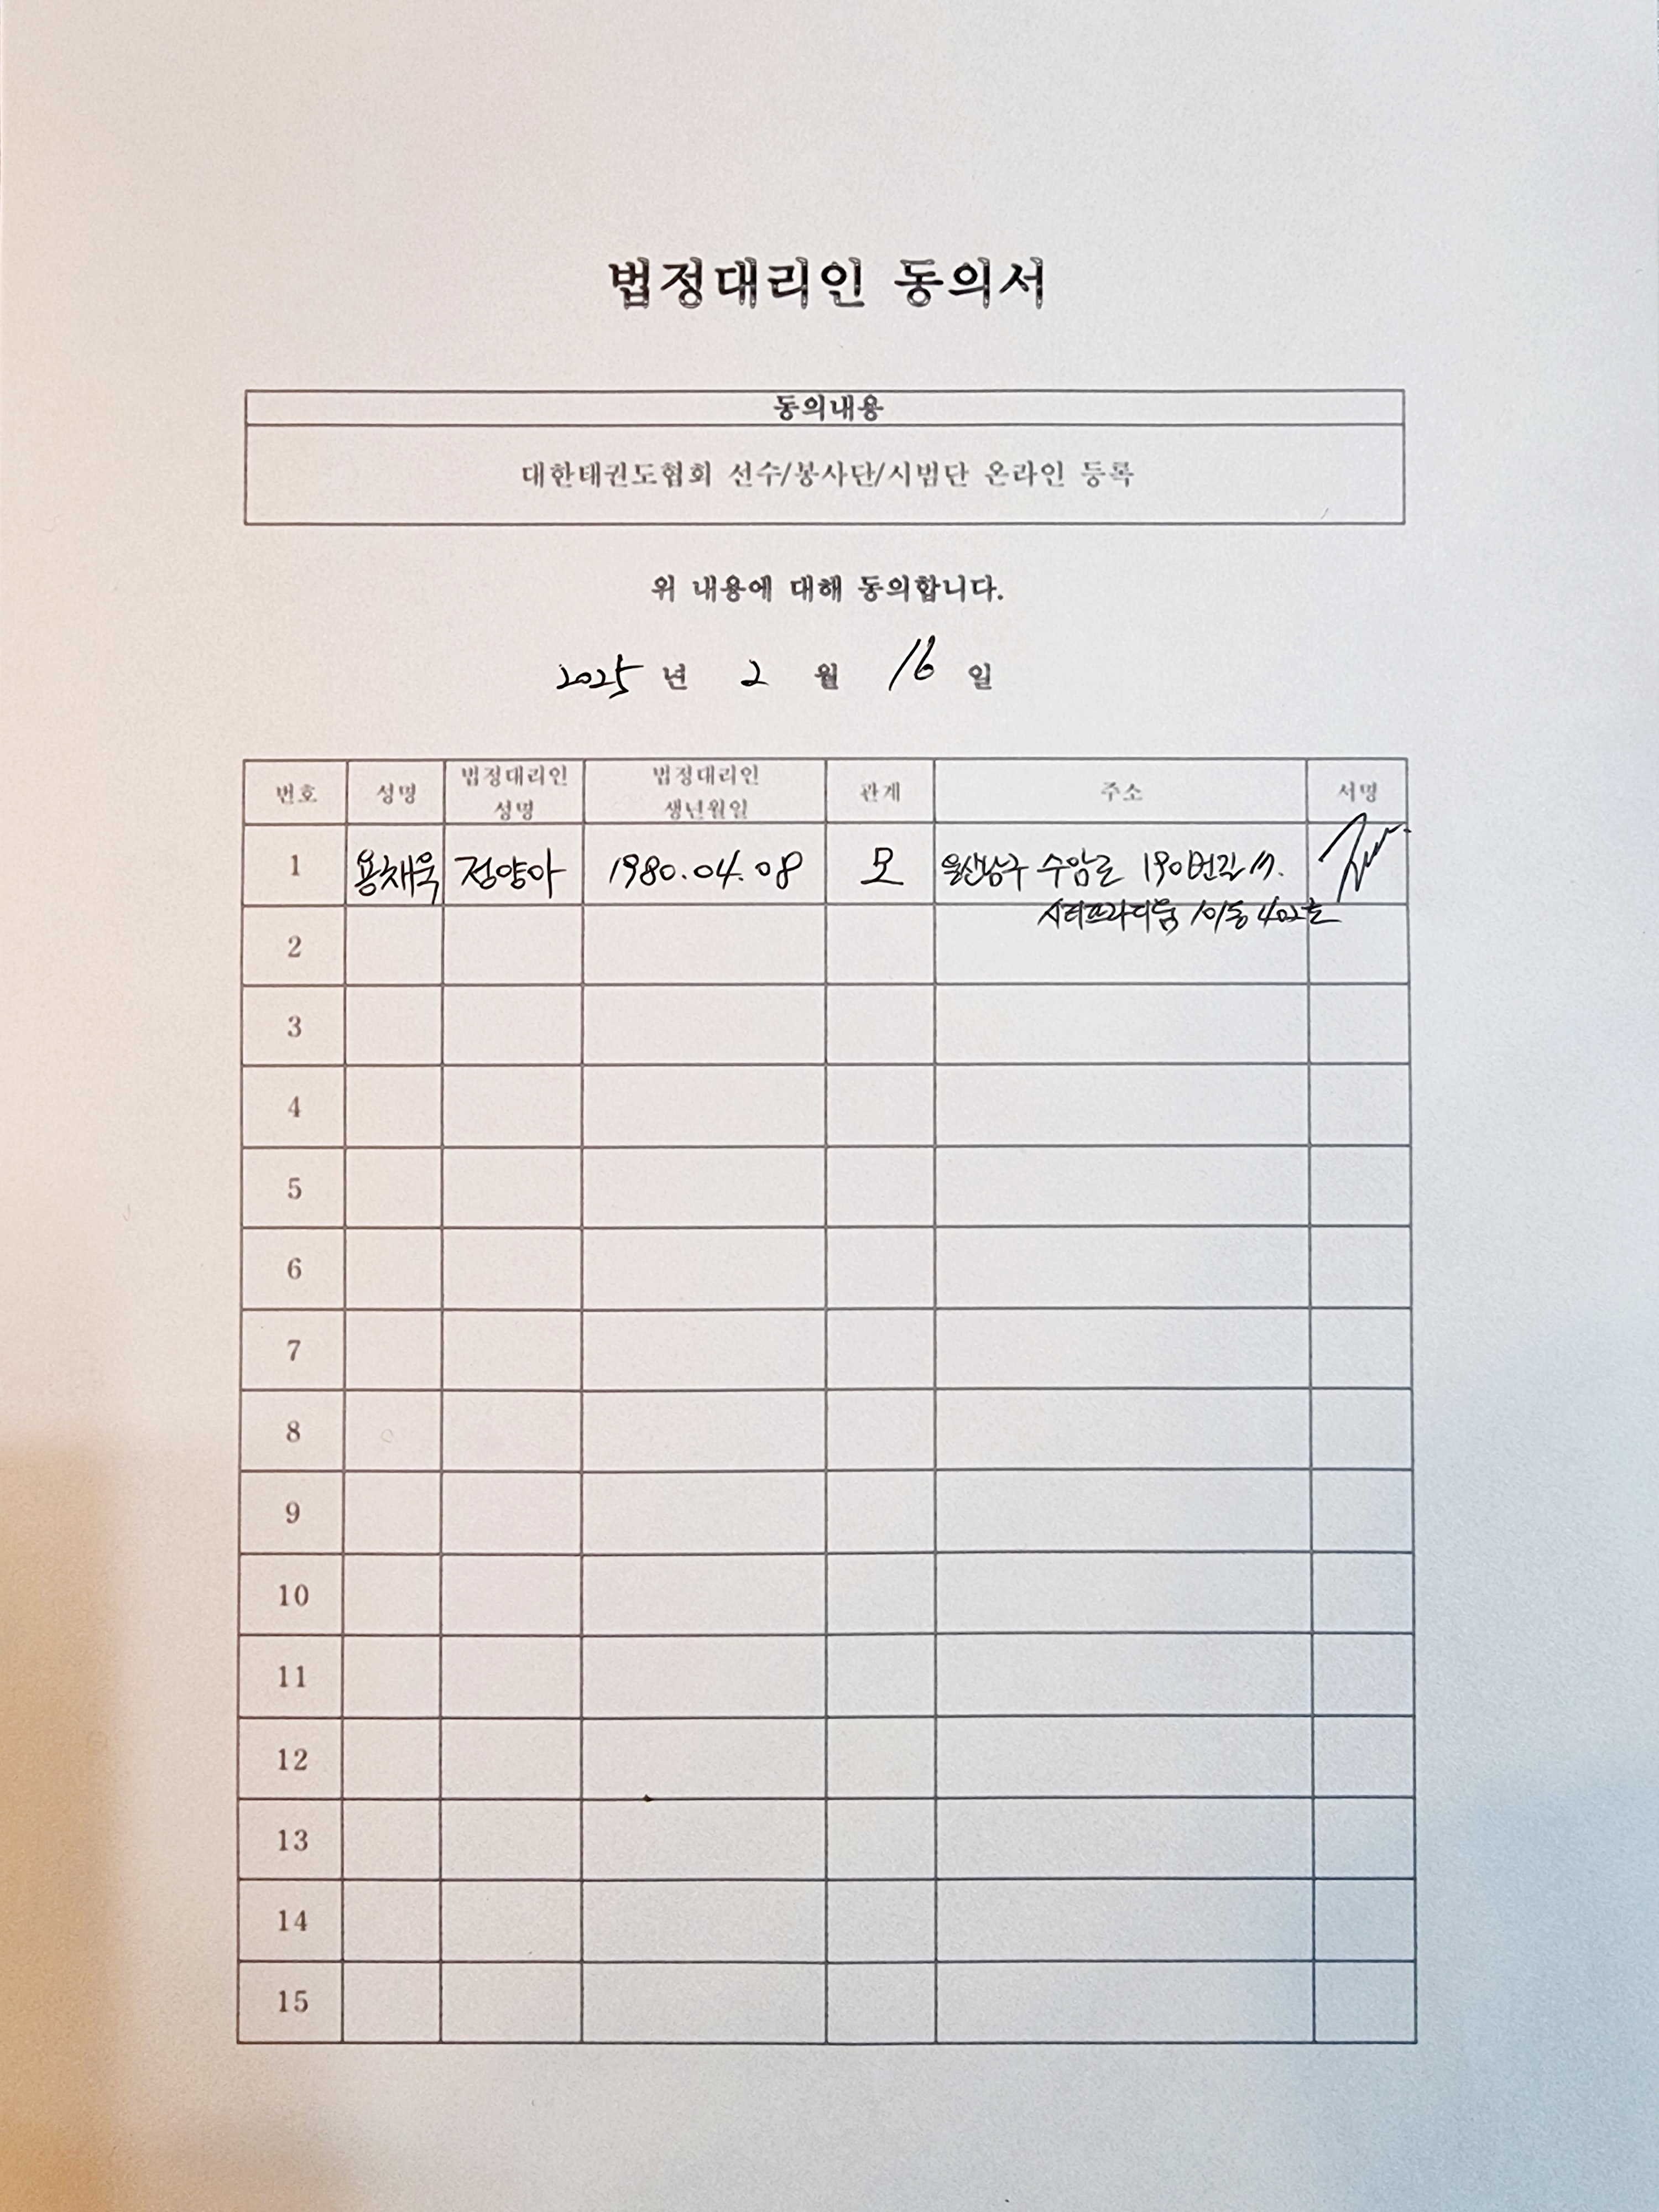 법정대리인 동의서
동의내용
대한태권도협회 선수/봉사단/시범단 온라인 등록
위 내용에 대해 동의합니다.
2025 년 2 월 16 일
번호 성명 법정대리인 성명 법정대리인 생년월일 관계 주소 서명
1 용채욱 정양아 1980.04.08 모 울산남구 수암로 190번길
시티프라디움 101동 402호
2
3
4
5
6
7
8
9
10
11
12
13
14
15